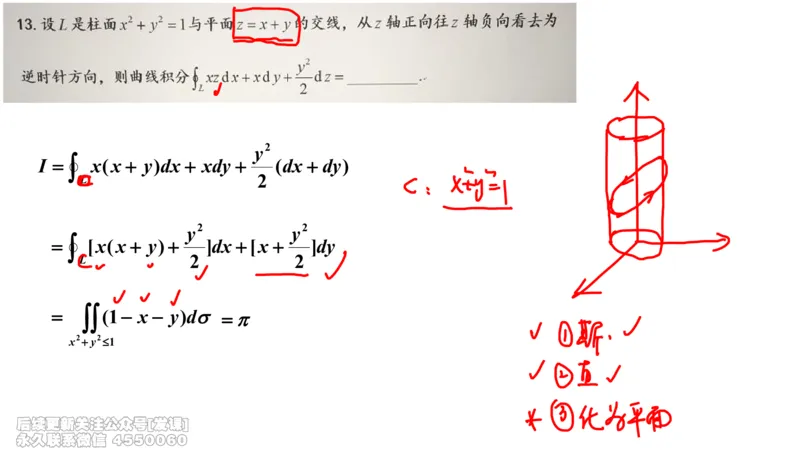 13. 设 L 是柱面 x² + y² = 1 与平面 z = x + y 的交线，从 z 轴正向往 z 轴负向看去为
逆时针方向，则曲线积分 ∮_L xzdx + xdy + y²/2 dz = ________.
I = ∮ x(x + y)dx + xdy + y²/2 (dx + dy)
C: x²+y²=1
= ∮_C [x(x + y) + y²/2]dx + [x + y²/2]dy
= ∬_{x²+y²≤1} (1 − x − y)dσ = π
✓ ①斯. ✓
✓ ②直 ✓
* ③化为平面
后续更新关注公众号[发课]
永久联系微信 4550060